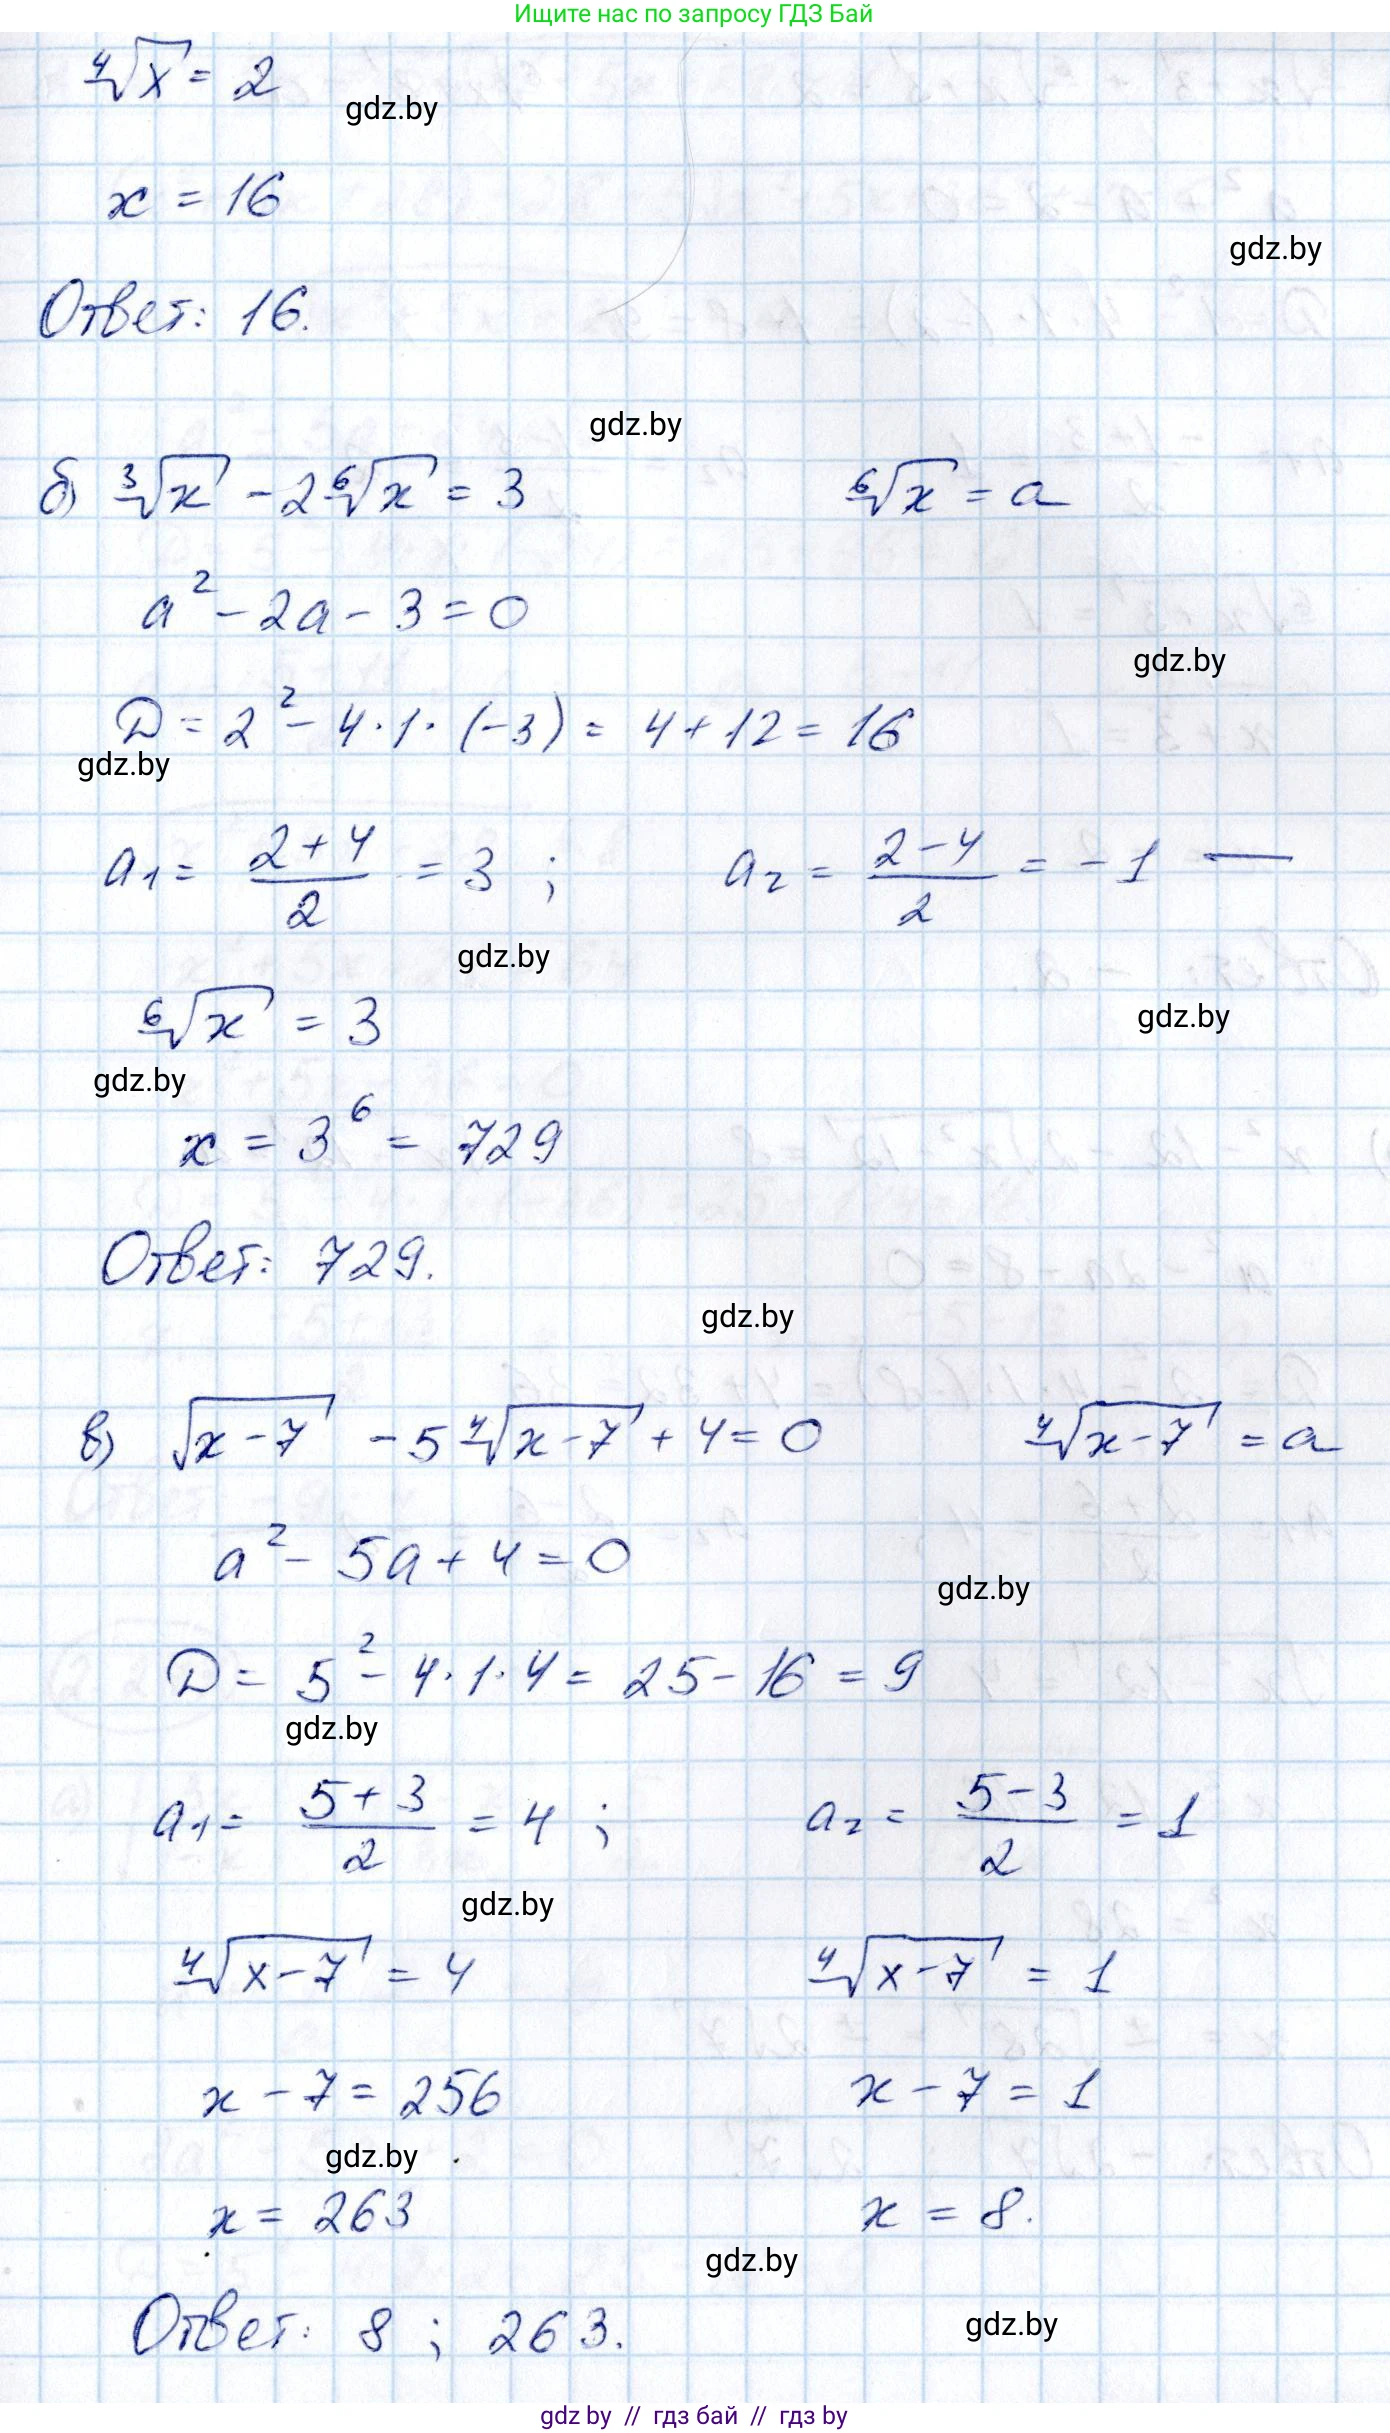 Ищите нас по запросу ГДЗ Бай
⁴√x = 2
gdz.by
x = 16
gdz.by
Ответ: 16.
gdz.by
б) ³√x - 2 ⁶√x = 3 ⁶√x = a
a² - 2a - 3 = 0
gdz.by
D = 2² - 4·1·(-3) = 4 + 12 = 16
gdz.by
a₁ = (2+4)/2 = 3 ; a₂ = (2-4)/2 = -1 —
gdz.by
⁶√x = 3
gdz.by
gdz.by
x = 3⁶ = 729
Ответ: 729.
gdz.by
в) √(x-7) - 5 ⁴√(x-7) + 4 = 0 ⁴√(x-7) = a
a² - 5a + 4 = 0
gdz.by
D = 5² - 4·1·4 = 25 - 16 = 9
gdz.by
a₁ = (5+3)/2 = 4 ; a₂ = (5-3)/2 = 1
gdz.by
⁴√(x-7) = 4 ⁴√(x-7) = 1
x - 7 = 256 x - 7 = 1
gdz.by
x = 263 x = 8.
gdz.by
Ответ: 8 ; 263.
gdz.by
gdz by // гдз бай // гдз by